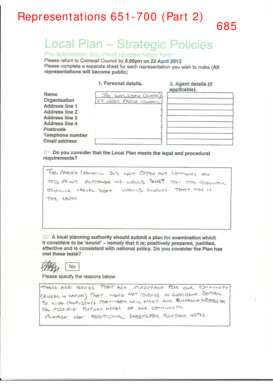 Representations 651-700 (Part 2)
685
Local Plan – Strategic Policies
Pre-submission document representation form
Please return to Cornwall Council by 5.00pm on 22 April 2013
Please complete a separate sheet for each representation you wish to make (All
representations will become public)
1. Personal details.
2. Agent details (if
applicable).
Name
Organisation
ST ISSEY PARISH COUNCIL
Address line 1
Address line 2
Address line 3
Address line 4
Postcode
Telephone number
Email address
Q1. Do you consider that the Local Plan meets the legal and procedural
requirements?
THE PARISH COUNCIL DID NOT OFFER ANY COMMENT ON
THIS POINT ALTHOUGH WE WOULD TRUST THAT THE COUNCIL
LEGAL DEPT WOULD ENSURE THAT THIS IS
THE CASE
Q2. A local planning authority should submit a plan for examination which
it considers to be 'sound' – namely that it is; positively prepared, justified,
effective and is consistent with national policy. Do you consider the Plan has
met these tests?
No
Please specify the reasons below
THERE ARE ISSUES THAT ARE IMPORTANT FOR OUR COMMUNITY
(RURAL IN NATURE) THAT WERE NOT COVERED IN SUFFICIENT DETAIL
TO GIVE CONFIDENCE THAT THEY WILL MEET OUR CURRENT NEEDS OR
THE POSSIBLE FUTURE NEEDS OF OUR COMMUNITY.
PLEASE SEE ADDITIONAL SHEETS FOR FURTHER NOTES.